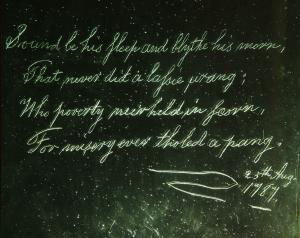 Sound be his sleep and blythe his morn,
That never did a lassie wrang;
Who poverty ne'er held in scorn,
For misery ever tholed a pang.
25th Aug.
1787.